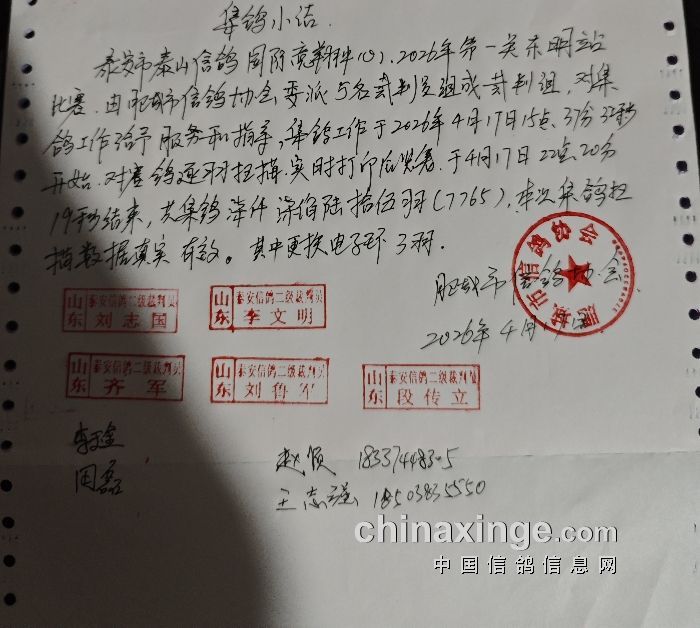 集鸽小结.
泰安市泰山信鸽国际赛翔中心, 2026年第一关东明站
比赛. 由肥城市信鸽协会委派5名裁判员组成裁判组, 对集
鸽工作给予服务和指导, 集鸽工作于2026年4月17日15点37分22秒
开始. 对赛鸽逐羽扫描. 实时打印底览表. 于4月17日22点20分
19秒结束, 共集鸽柒仟柒佰陆拾伍羽(7765), 本次集鸽扫
描数据真实有效。其中更换电子环3羽.
肥城市信鸽协会
2026年4月17日
肥城市信鸽协会
山东 泰安信鸽二级裁判员 刘志国
山东 泰安信鸽二级裁判员 李文明
山东 泰安信鸽二级裁判员 齐军
山东 泰安信鸽二级裁判员 刘鲁军
山东 泰安信鸽二级裁判员 段传立
田磊
赵
王志强 18503835550
chinaxinge.com
中国信鸽信息网